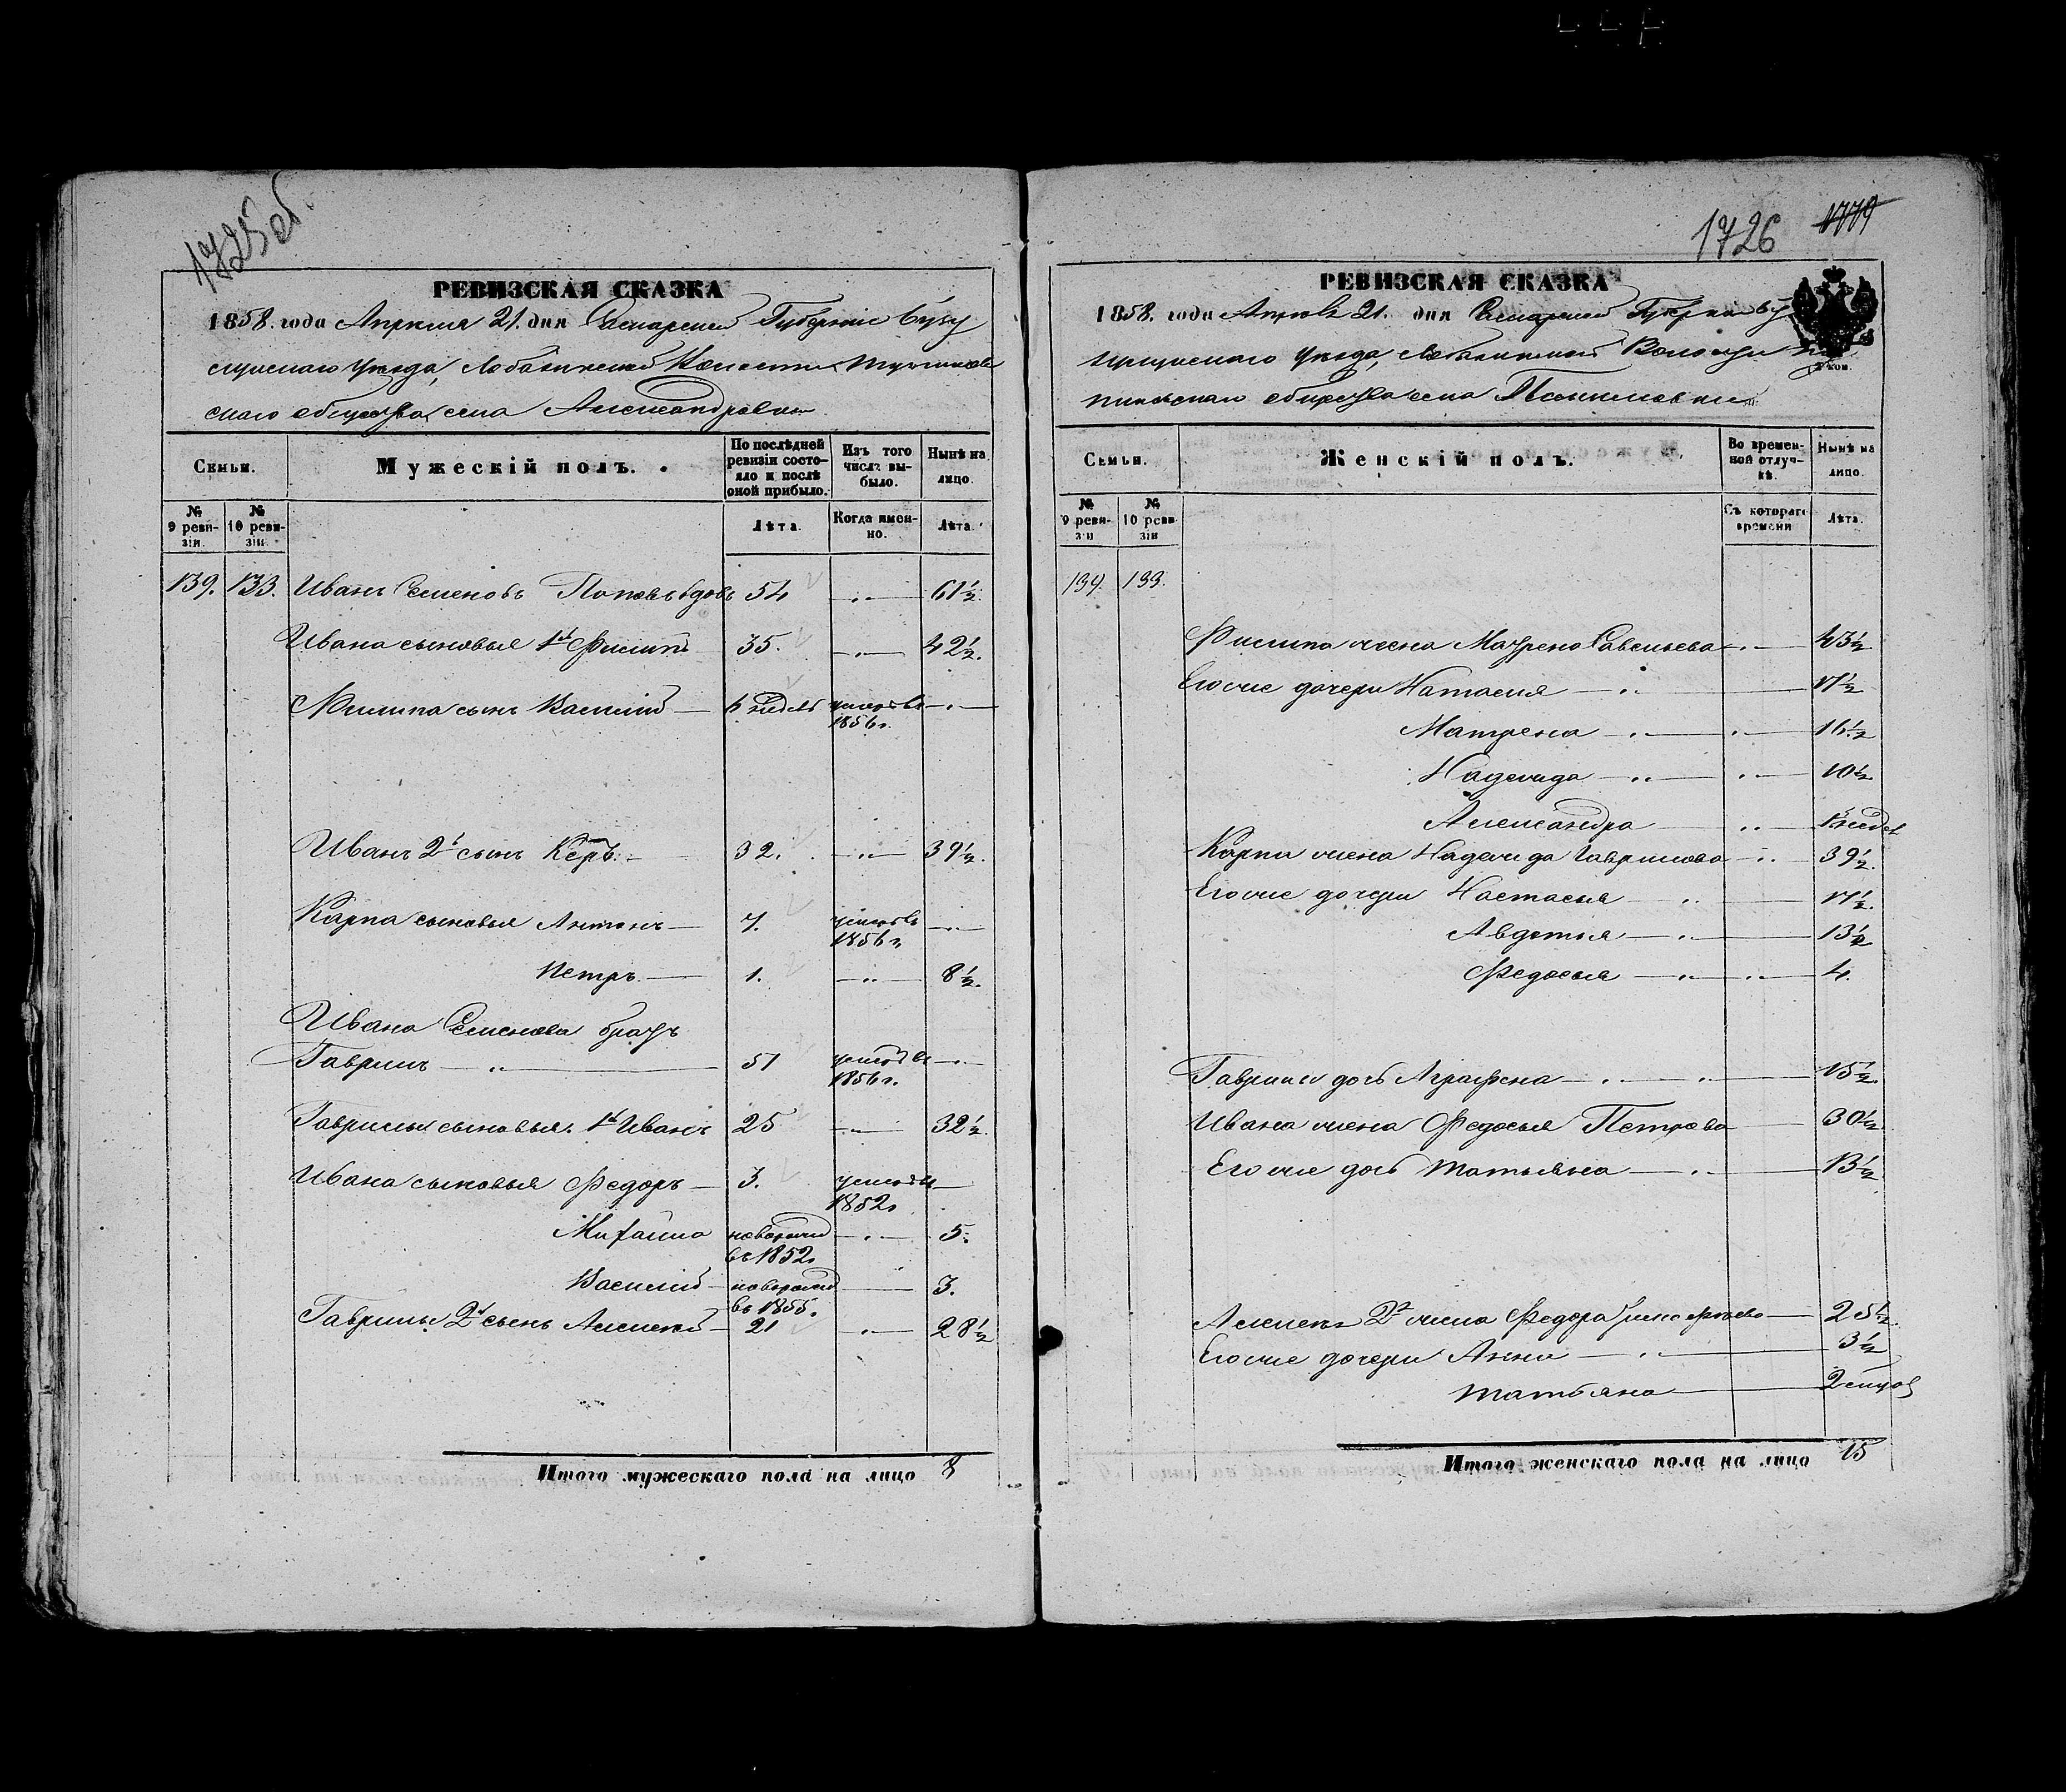 1725об.
РЕВИЗСКАЯ СКАЗКА
1858. года Апреля 21. дня Самарской Губернии Бузу
лукскаго уезда, Лобазинской Волости
скаго общества села Александровки
Семьи.
Мужескій полъ.
По послѣдней ревизіи состояло и послѣ оной прибыло.
Изъ того числа выбыло.
Нынѣ на лицо.
№ 9 ревизіи.
№ 10 ревизіи.
Лѣта.
Когда именно.
Лѣта.
139. 133. Иванъ Семеновъ Поповъ вдовъ 54 — " — 61½.
Ивана сыновья 1й Филипъ 35. — " — 42½.
Филипа сынъ Василій 6 недель умеръ въ — " —
1856г.
Иванъ 2й сынъ 32. — " — 39½.
Карпа сыновья Антонъ 7. умеръ въ — " —
1856г.
Петръ 1. — " — 8½.
Ивана Семенова братъ
Гаврилъ — " — 51 умеръ въ — " —
1856г.
Гаврилы сыновья. 1й Иванъ 25 — " — 32½.
Ивана сыновья Федоръ 3. умеръ въ —
1852г
Михаила новорожд — " — 5.
въ 1852г
Василій новорожд — 3.
въ 1855г.
Гаврилы 2й сынъ Алексей 21 — " — 28½
Итого мужескаго пола на лицо 8
1726 1779
РЕВИЗСКАЯ СКАЗКА
1858. года Апреля 21. дня Самарской Губернии Бу
зулускаго уезда, Лобазинской Волости
общества села
2 коп.
Семьи.
Женскій полъ.
Во временной отлучкѣ.
Нынѣ на лицо.
№ 9 ревизіи
№ 10 ревизіи
Съ котораго времени
Лѣта.
139. 133.
Филипа жена Матрена Савельева — " — 43½
Его же дочери Натасия — " — 17½
Матрена — " — 16½
Надежда — " — 10½
Александра " 6 недел
Карпа жена Надежда Гаврилова — " — 39½.
Его же дочери Настасья " — 17½.
Авдотья — " — 13½
Федосья — " — 4.
Гаврилы дочь Аграфена — " — 15½.
Ивана жена Федосья Петрова 30½
Его же дочь Татьяна — " — 13½
Алексея 2й жена Федора — 25½.
Его же дочери Анна — " — 3½
Татьяна 2 месяцов
Итого женскаго пола на лицо 15